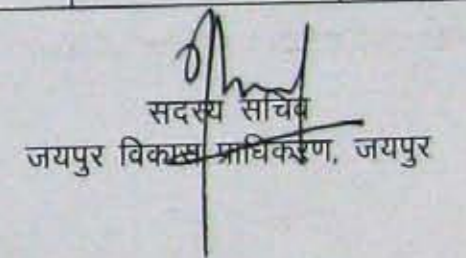 सदस्य सचिव
जयपुर विकास प्राधिकरण, जयपुर